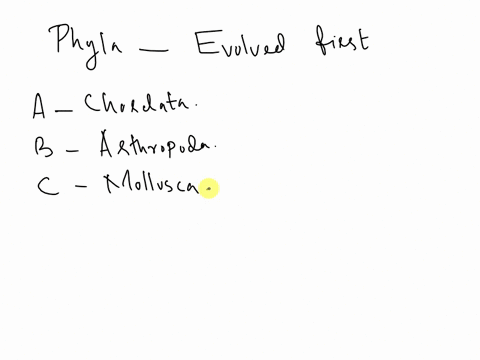 Phyla — Evolved first
A - Chordata.
B - Arthropoda.
C - Mollusca.